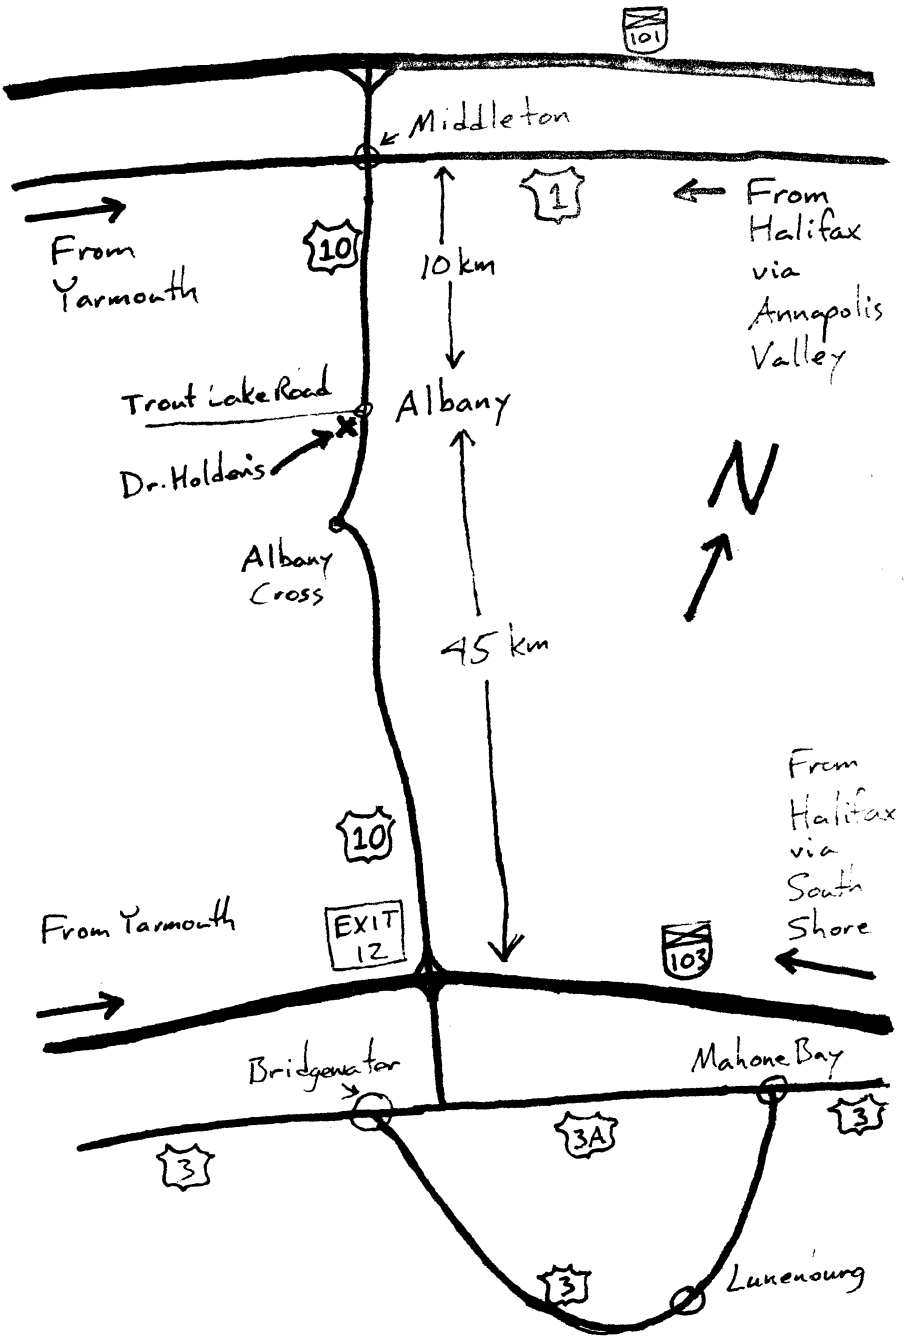 101
Middleton
1
From
Halifax
via
Annapolis
Valley
From
Yarmouth
10
10 km
Trout Lake Road
Albany
Dr. Holden's
N
Albany
Cross
45 km
From
Halifax
via
South
Shore
10
From Yarmouth
EXIT
12
103
Bridgewater
Mahone Bay
3
3A
3
3
Lunenburg